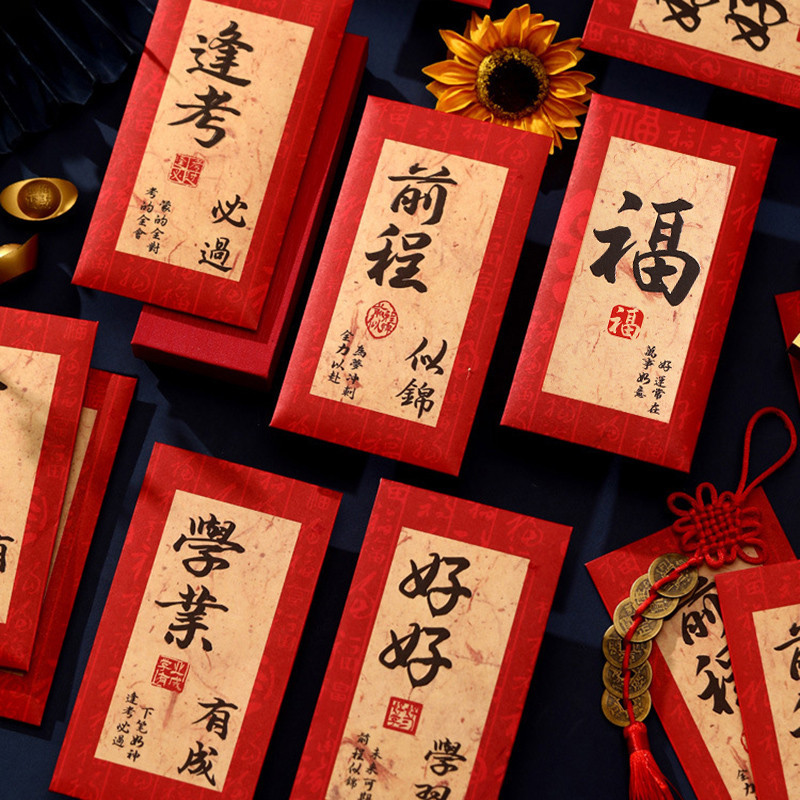 逢考
必過
考的全會
蒙的全對
前程
似錦
全力以赴
為夢冲刺
福
福
萬事如意
好運常在
學業
有成
逢考必過
下筆如神
好好
學習
前程似錦
未來可期
有
前程
前